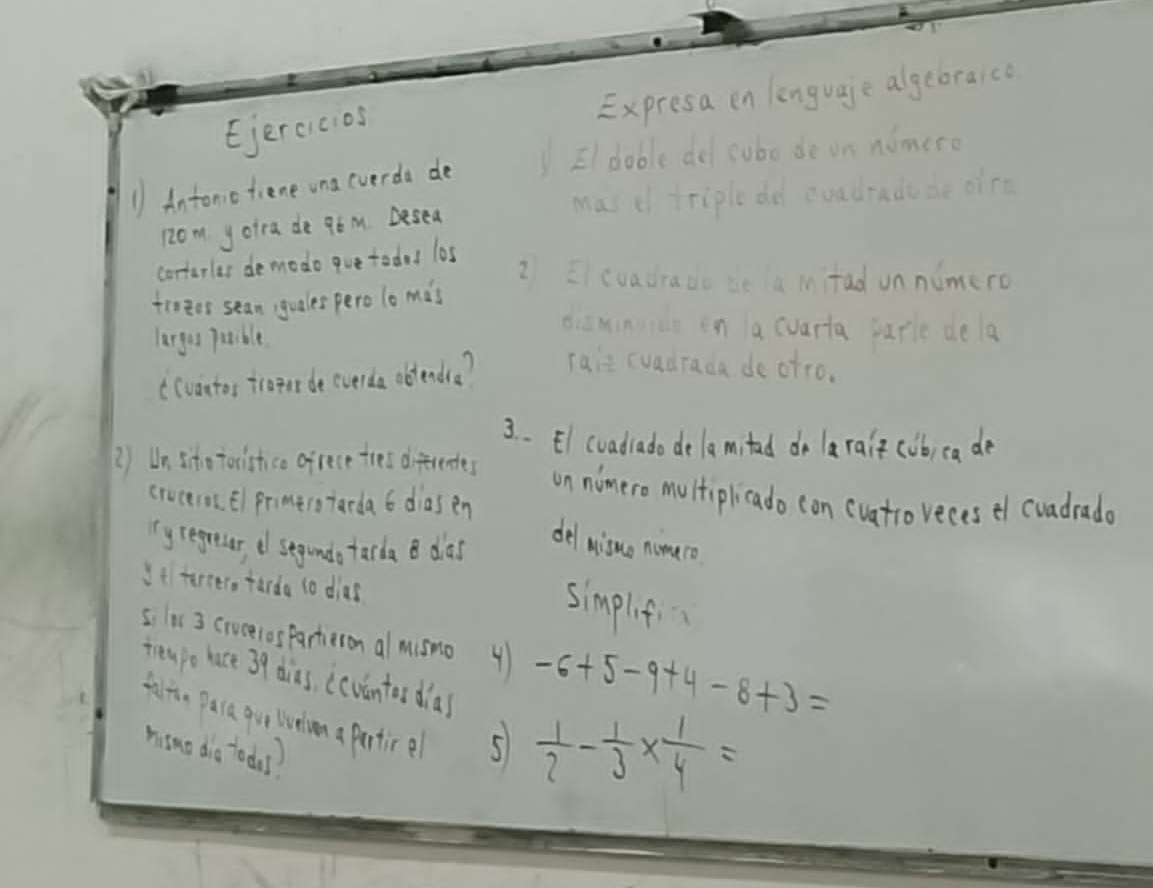 Ejercicios
1) Antonio tiene una cuerda de
120 m. y otra de 96 m. Desea
cortarlas de modo que todos los
trozos sean iguales pero lo más
largos posible.
¿Cuántos trozos de cuerda obtendra?
2) Un sitio turístico ofrece tres diferentes
cruceros. El primero tarda 6 días en
ir y regresar, el segundo tarda 8 días
y el tercero tarda 10 días.
Si los 3 cruceros partieron al mismo
tiempo hace 39 días. ¿cuántos días
faltan para que vuelvan a partir el
mismo día todos?
Expresa en lenguaje algebraico
1) El doble del cubo de un número
mas el triple del cuadrado de otro
2) El cuadrado de la mitad un número
disminuido en la cuarta parte de la
raiz cuadrada de otro.
3.- El cuadrado de la mitad de la raíz cúbica de
un número multiplicado con cuatro veces el cuadrado
del mismo número.
4) -6+5-9+4-8+3=
5) 1/2 - 1/3 × 1/4 =